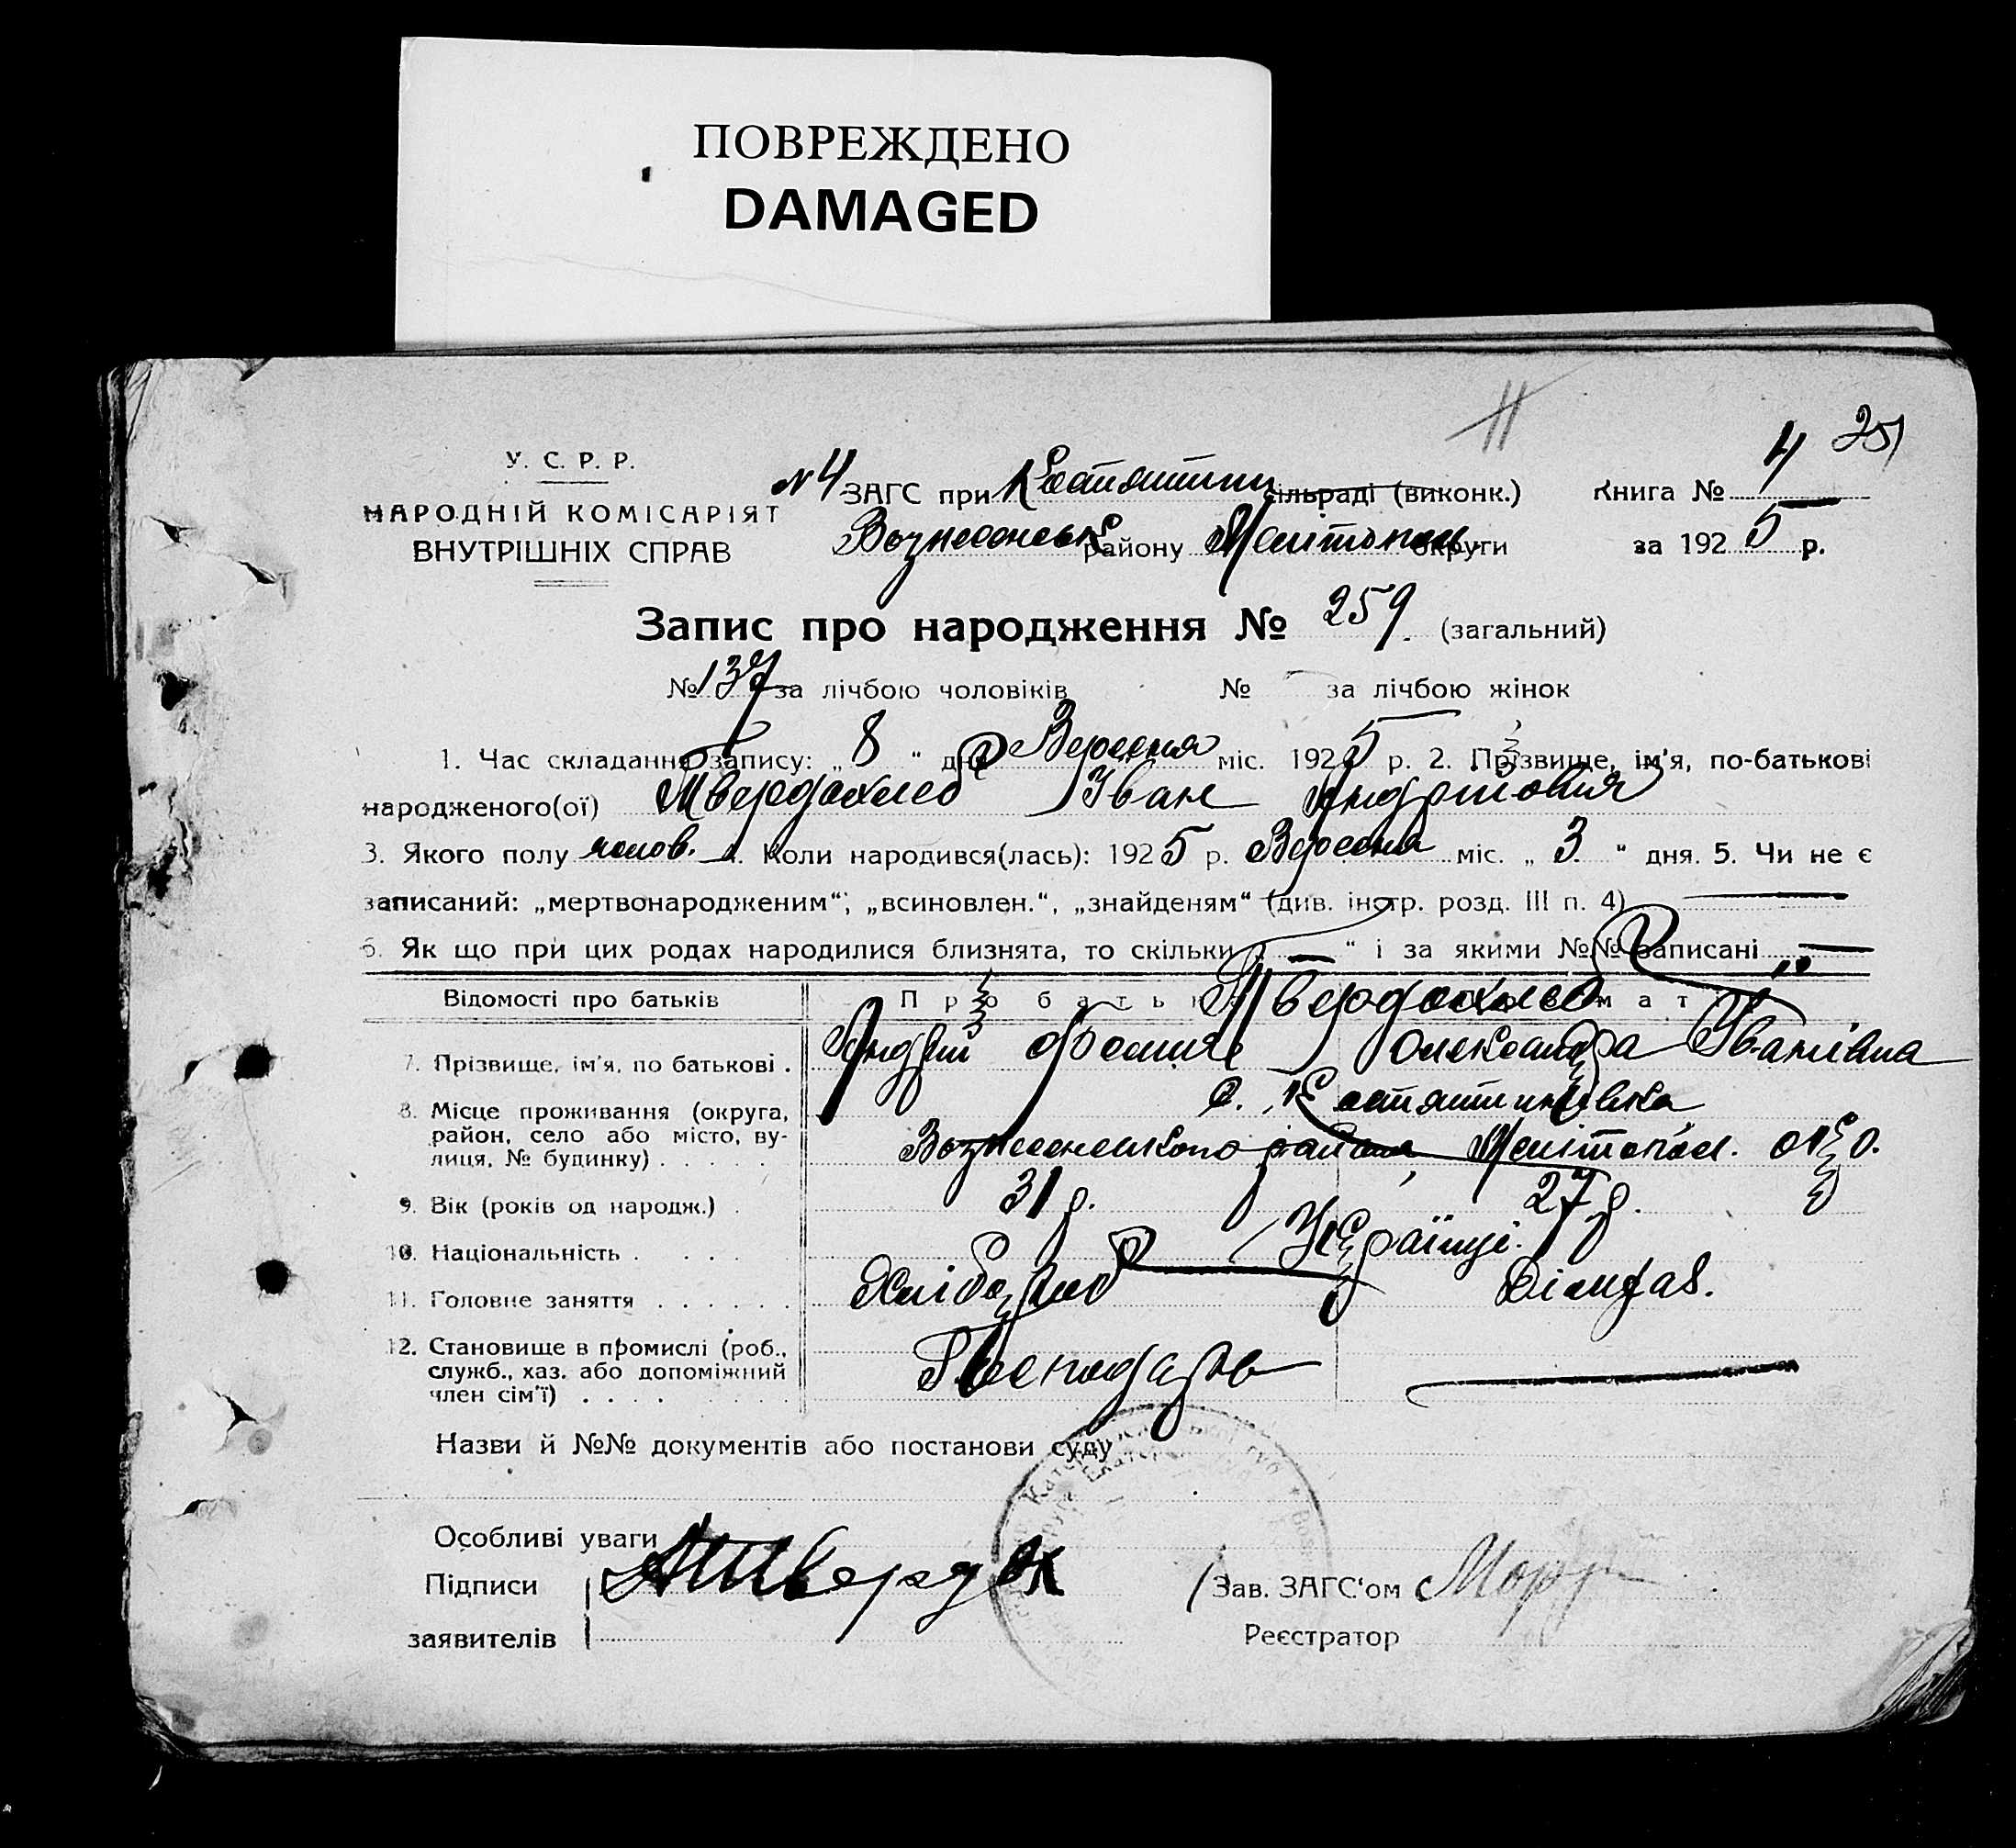 ПОВРЕЖДЕНО
DAMAGED
251
У. С. Р. Р.
НАРОДНІЙ КОМІСАРІЯТ
ВНУТРІШНІХ СПРАВ
№ 4 ЗАГС при Костянтин сільраді (виконк.) Книга № 4
Вознесенськ району Мелітопол. округи за 1925 р.
Запис про народження № 259. (загальний)
№ 137 за лічбою чоловіків № за лічбою жінок
1. Час складання запису: „ 8 “ дня Вересня міс. 1925 р. 2. Прізвище, ім'я, по-батькові
народженого(ої) Твердохлеб Іван
3. Якого полу чолов. 4. Коли народився(лась): 1925 р. Вересня міс. „ 3 “ дня. 5. Чи не є
записаний: „мертвонародженим“, „всиновлен.“, „знайденям“ (див. інстр. розд. III п. 4)
6. Як що при цих родах народилися близнята, то скільки „ — “ і за якими №№ записані „ —
Відомості про батьків Про батька Твердохлеб мат
7. Прізвище, ім'я, по батькові . Андрій Олександра Іванівна
8. Місце проживання (округа, с. Костянтинівка
район, село або місто, ву-
лиця, № будинку) . . . . . Вознесенського району, Мелітопол. окр.
9. Вік (років од народж.) . 31 р. 27 р.
10. Національність . . . . Українці.
11. Головне заняття . . . . . . Хлібороб
12. Становище в промислі (роб.,
служб., хаз. або допоміжний
член сім'ї) . . . . Господарь
Назви й №№ документів або постанови суду
Особливі уваги
Підписи АТвердох Зав. ЗАГС'ом
заявителів Реєстратор